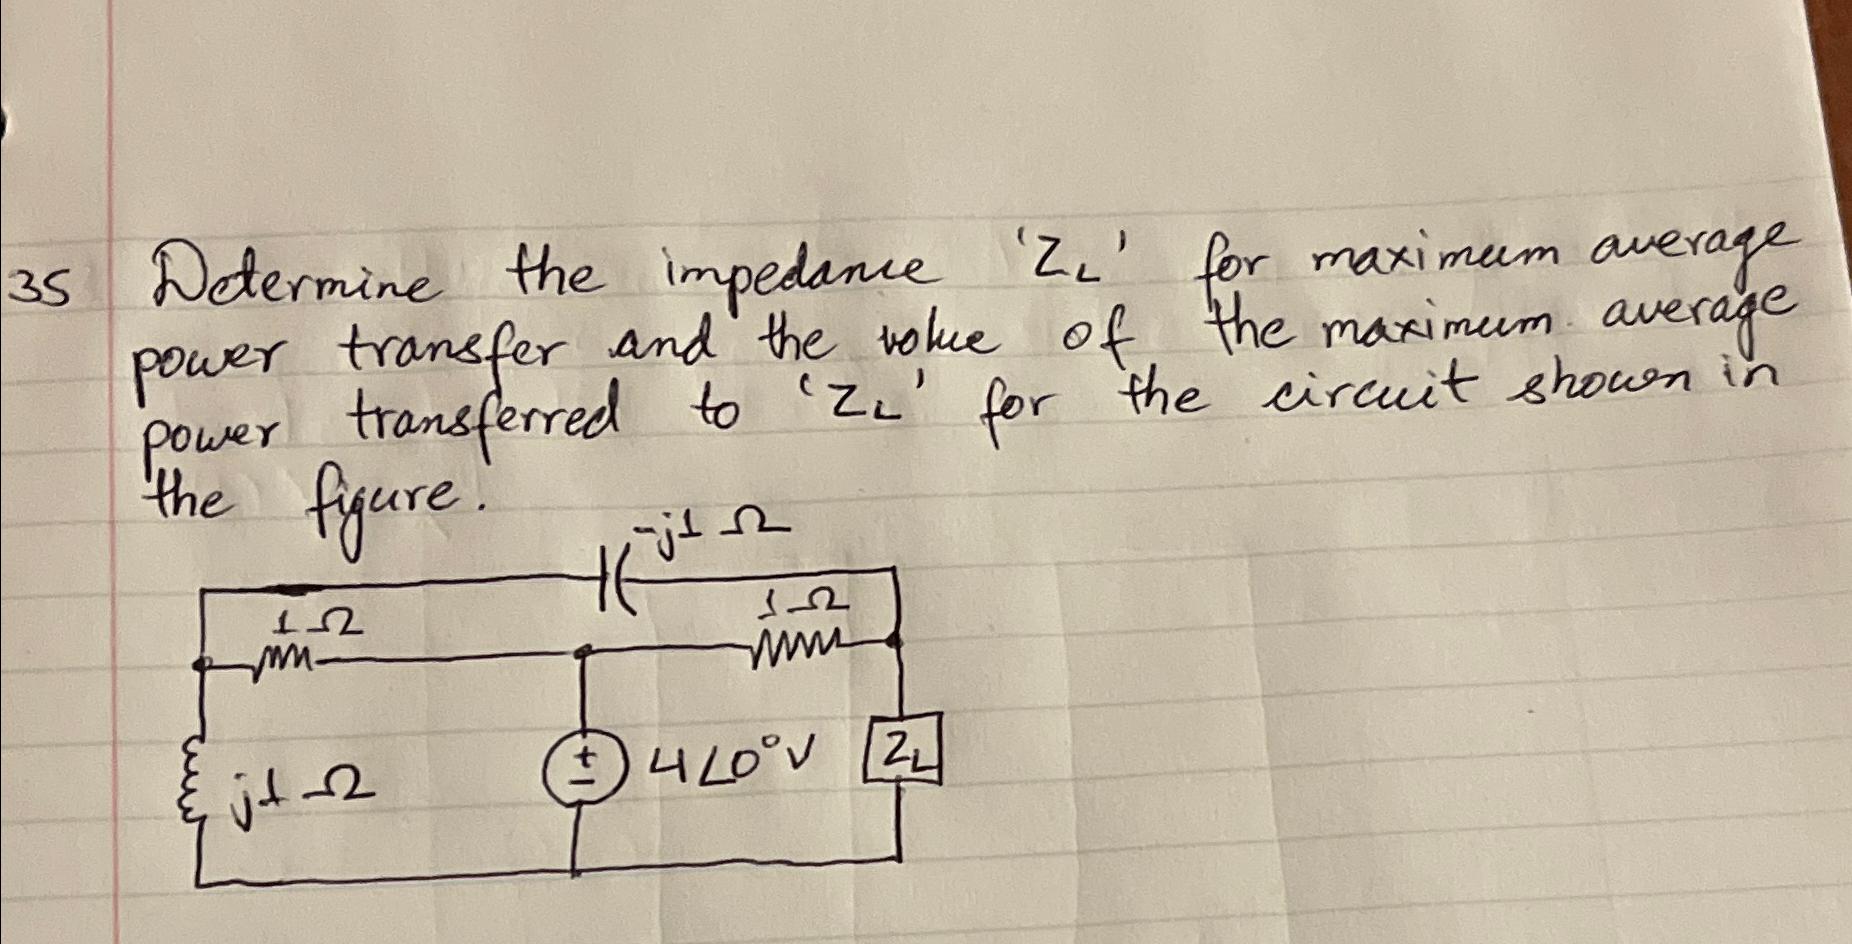 35 Determine the impedance 'ZL' for maximum average
power transfer and the value of the maximum average
power transferred to 'ZL' for the circuit shown in
the figure.
-j1 Ω
1 Ω
1 Ω
j1 Ω
+
-
4∠0° V
ZL